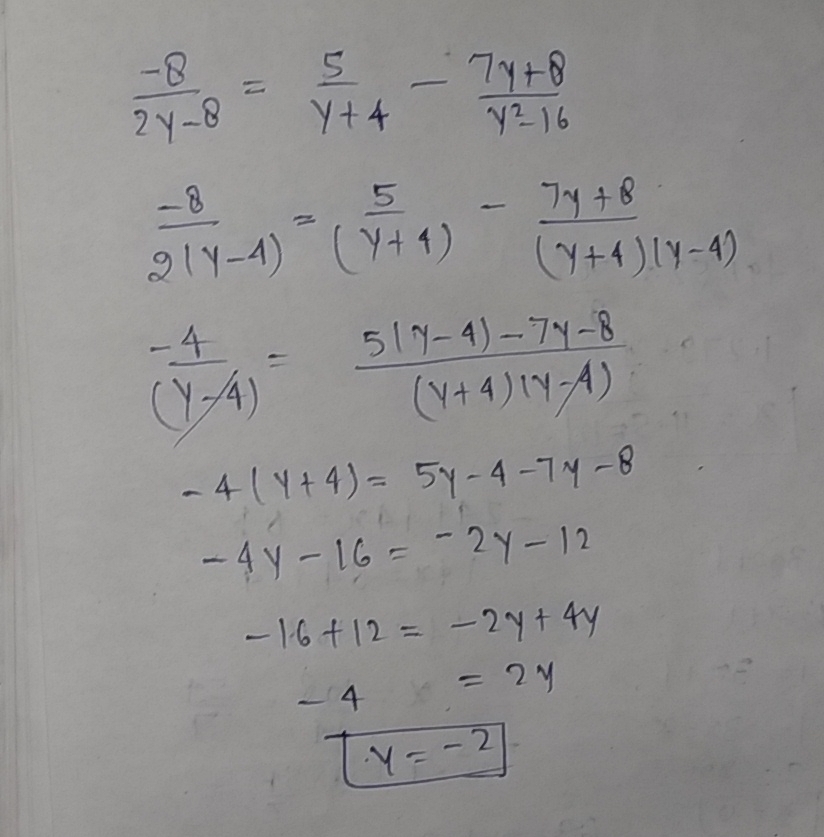 -8/(2y-8) = 5/(y+4) - (7y+8)/(y²-16)
-8/(2(y-4)) = 5/((y+4)) - (7y+8)/((y+4)(y-4))
-4/((y-4)) = (5(y-4)-7y-8)/((y+4)(y-4))
-4(y+4) = 5y-4-7y-8
-4y-16 = -2y-12
-16+12 = -2y+4y
-4 = 2y
y = -2